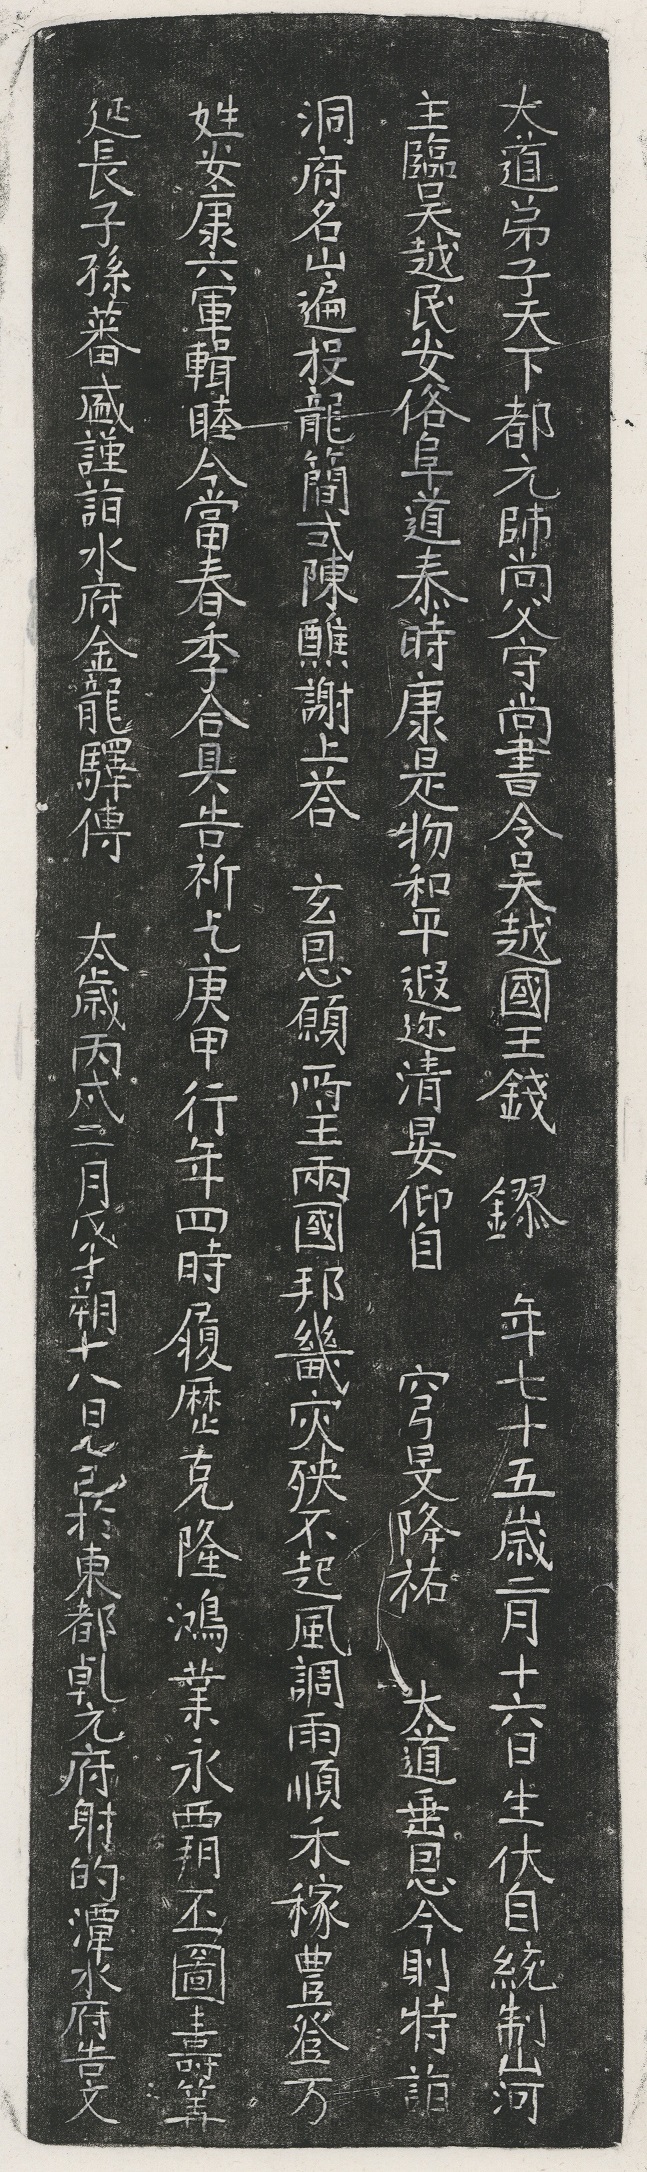 大道弟子天下都元帥尚父守尚書令吳越國王錢　鏐　年七十五歲二月十六日生伏自統制山河
主臨吳越民安俗阜道泰時康是物和平遐迩清晏仰自　穹旻降祐　大道垂恩今則特詣
洞府名山遍投龍簡式陳醮謝上荅　玄恩願所主兩國邦畿灾殃不起風調雨順禾稼豊登万
姓安康六軍輯睦今當春季合具告祈乞庚甲行年四時履歷克隆鴻業永䨱丕圖壽筭
延長子孫蕃盛謹詣水府金龍驛傳　太歲丙戌二月戊子朔十八日乙巳於東都乹元府射的潭水府告文